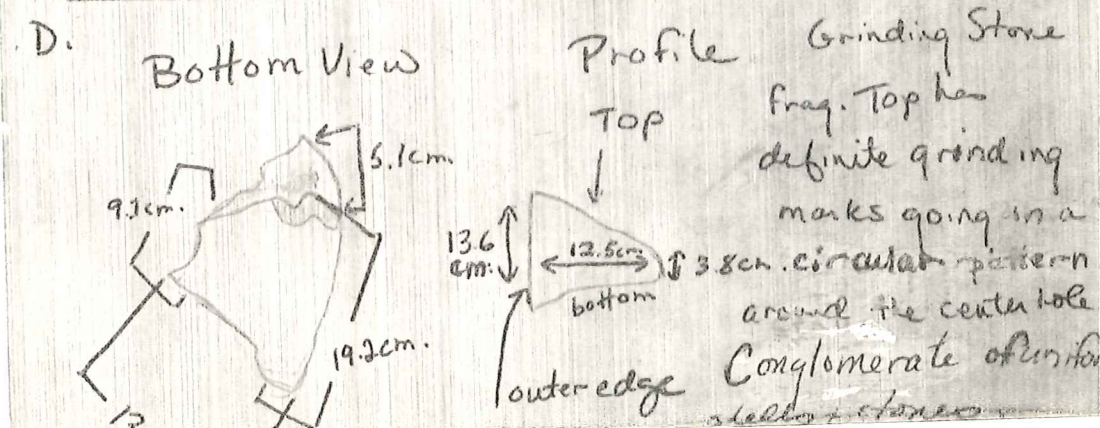 D.
Bottom View
5.1cm.
9.1cm.
19.2cm.
Profile
Top
13.6
cm.
12.5cm
3.8cm.
bottom
outer edge
Grinding Stone
frag. Top has
definite grinding
marks going in a
circular pattern
around the center hole
Conglomerate of